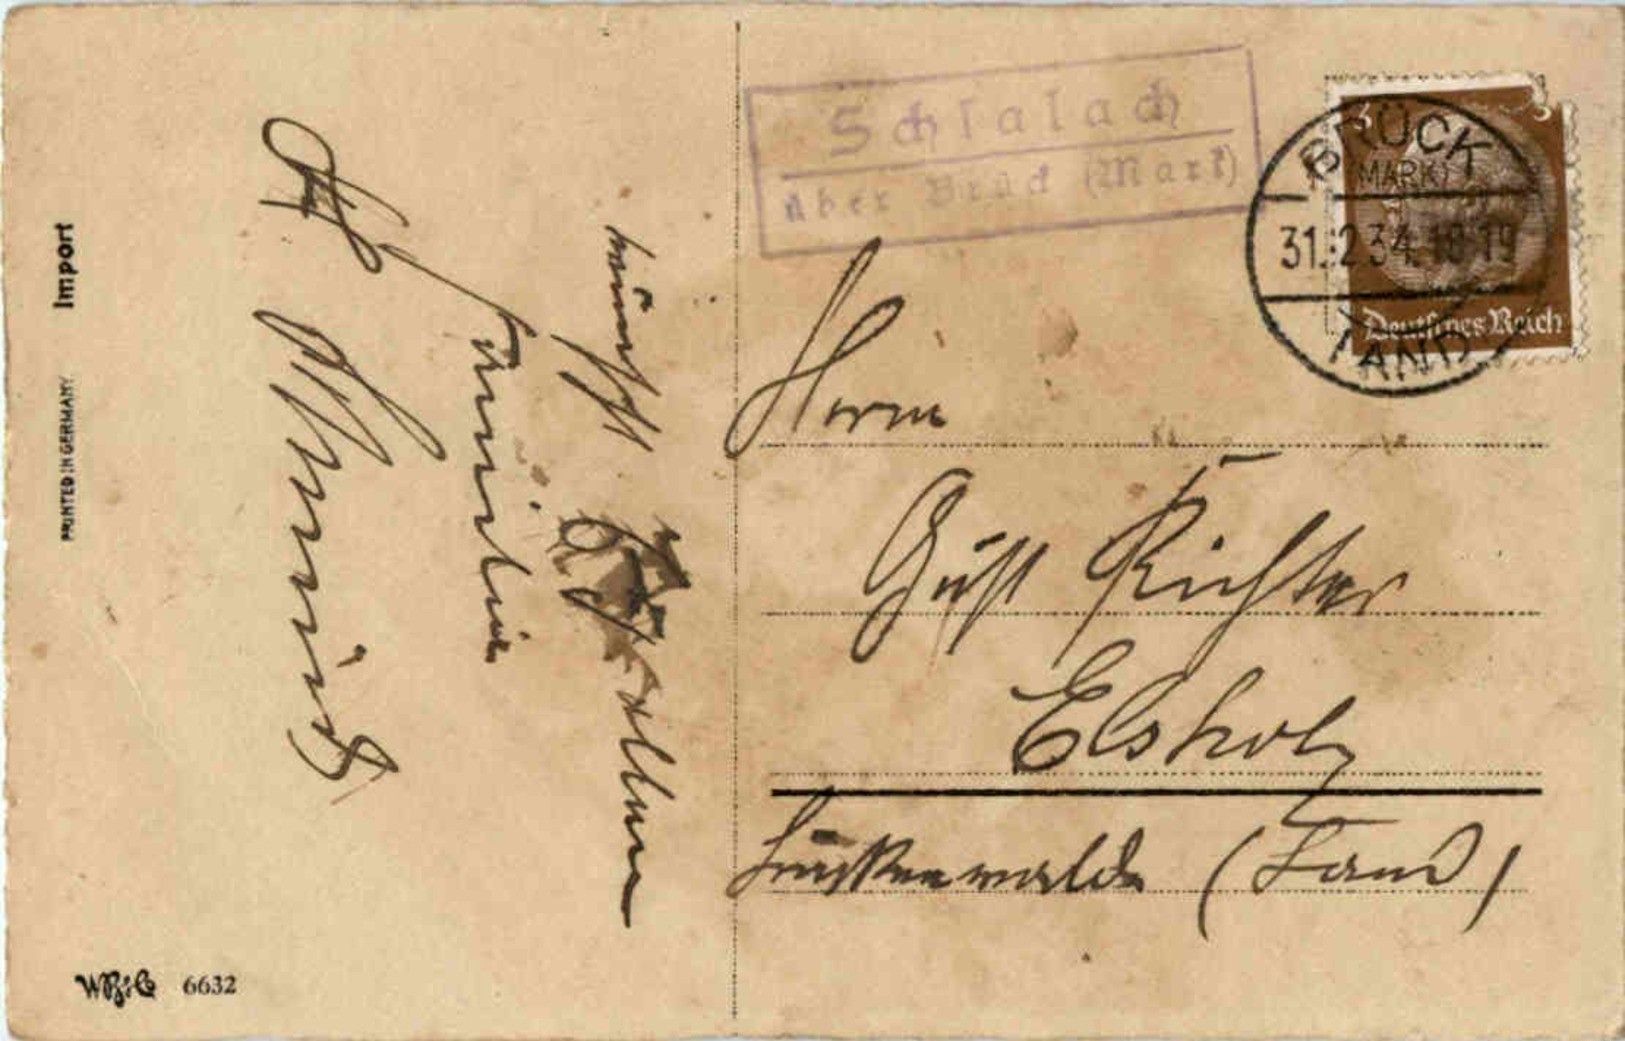 wünscht
Familie
Schlalach
über Brück (Mark)
BRÜCK
(MARK)
31.12.34.18-19
LAND
3 3
Deutsches Reich
Herrn
Gust Richter
Elsholz
Luckenwalde (Land)
Import
PRINTED IN GERMANY
WB&C 6632